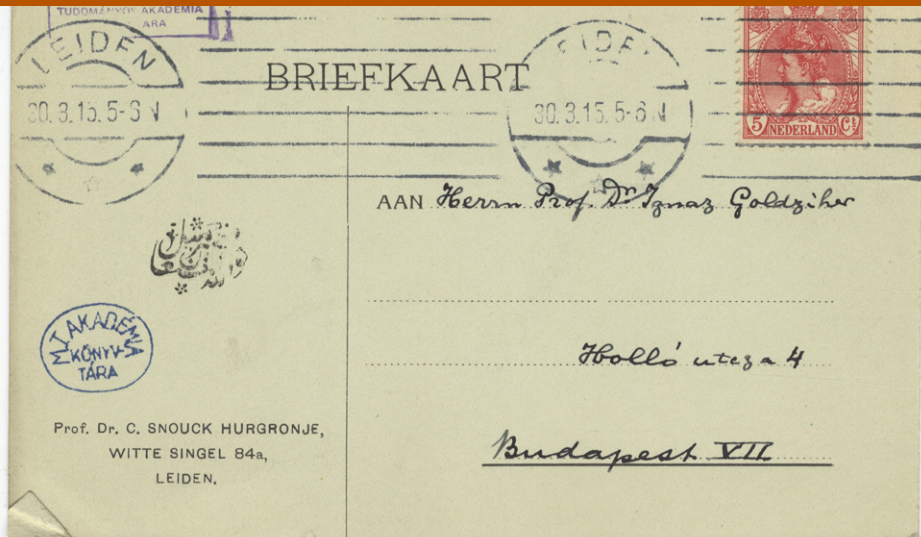 TUDOMÁNYOS AKADÉMIA
LEIDEN
30.3.15.5-6 N
BRIEFKAART
LEIDEN
30.3.15.5-6 N
5 NEDERLAND Ct
AAN Herrn Prof. Dr Ignaz Goldziher
Holló utcza 4
Budapest VII
M.T. AKADÉMIA
KÖNYV-
TÁRA
Prof. Dr. C. SNOUCK HURGRONJE,
WITTE SINGEL 84a,
LEIDEN.